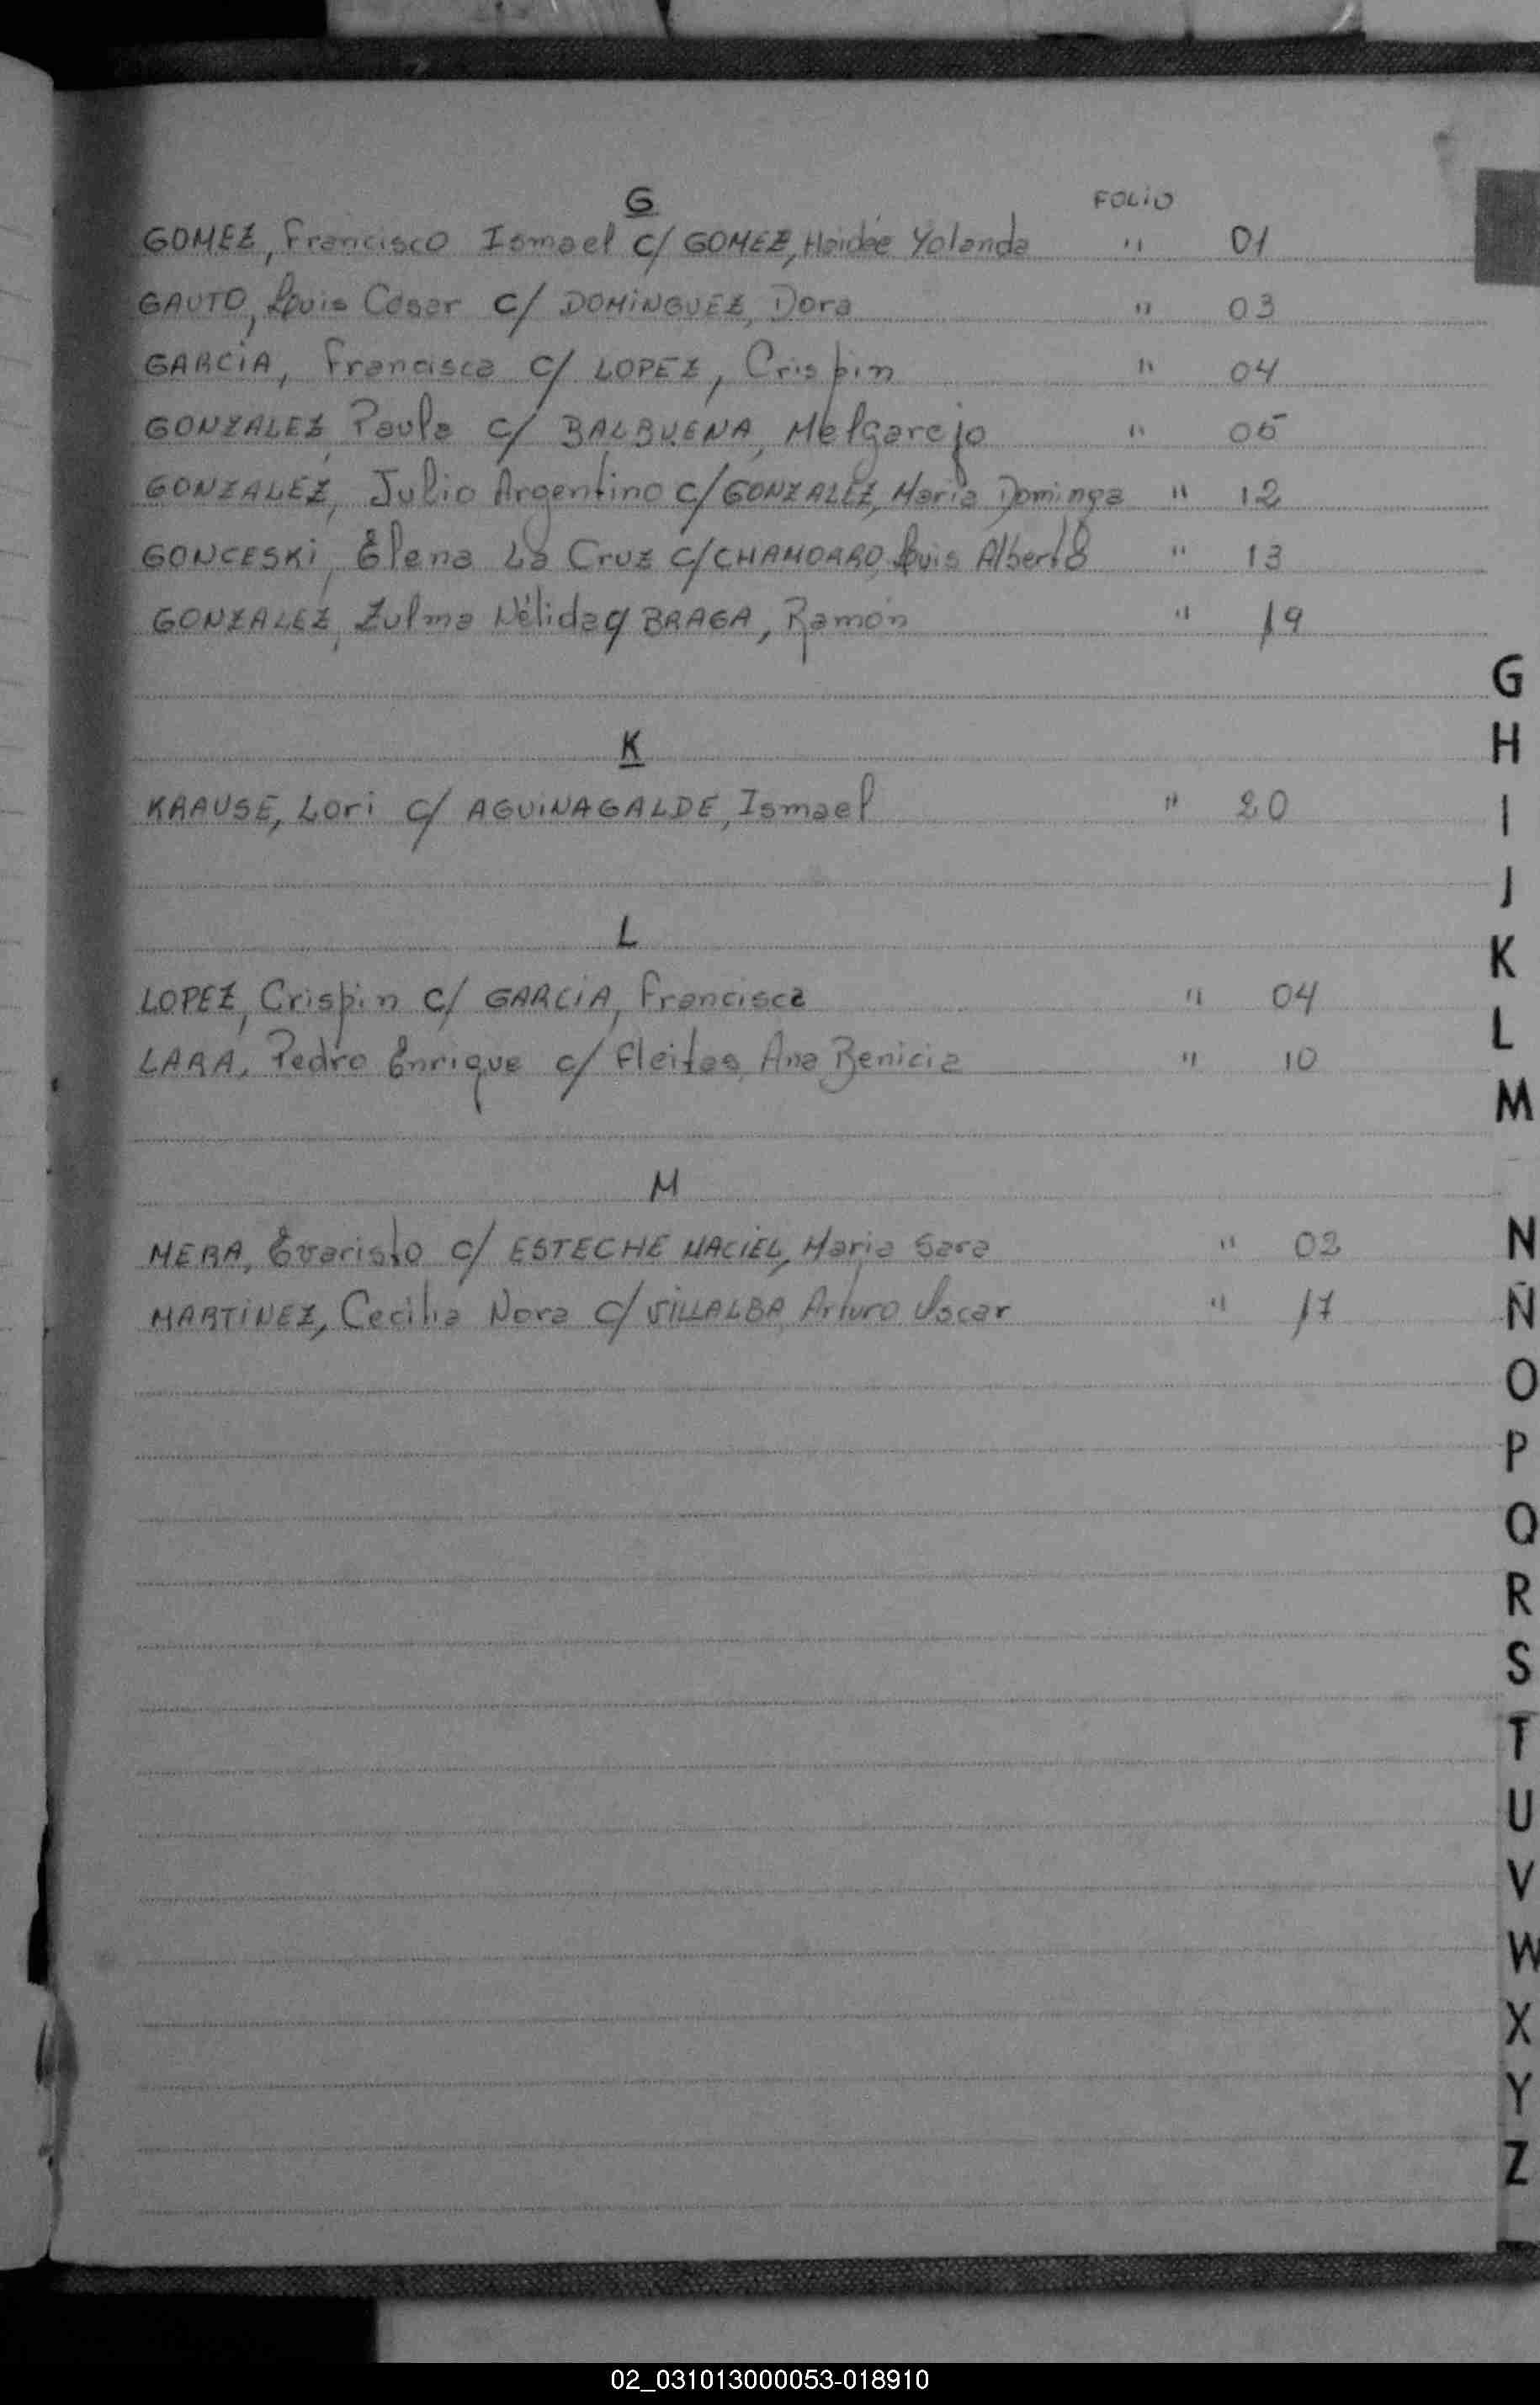 G FOLIO
GOMEZ, Francisco Ismael c/ GOMEZ, Haidée Yolanda " 01
GAUTO, Luis César c/ DOMINGUEZ, Dora " 03
GARCIA, Francisca c/ LOPEZ, Crispin " 04
GONZALEZ, Paula c/ BALBUENA, Melgarejo " 05
GONZALEZ, Julio Argentino c/ GONZALEZ, María Dominga " 12
GONCESKI, Elena La Cruz c/ CHAMORRO, Luis Alberto " 13
GONZALEZ, Zulma Nélida c/ BRAGA, Ramón " 19
K
KRAUSE, Lori c/ AGUINAGALDE, Ismael " 20
L
LOPEZ, Crispin c/ GARCIA, Francisca " 04
LARA, Pedro Enrique c/ Fleitas, Ana Benicia " 10
M
MERA, Evaristo c/ ESTECHE MACIEL, Maria Sara " 02
MARTINEZ, Cecilia Nora c/ VILLALBA, Arturo Oscar " 17
G
H
I
J
K
L
M
N
Ñ
O
P
Q
R
S
T
U
V
W
X
Y
Z
02_031013000053-018910